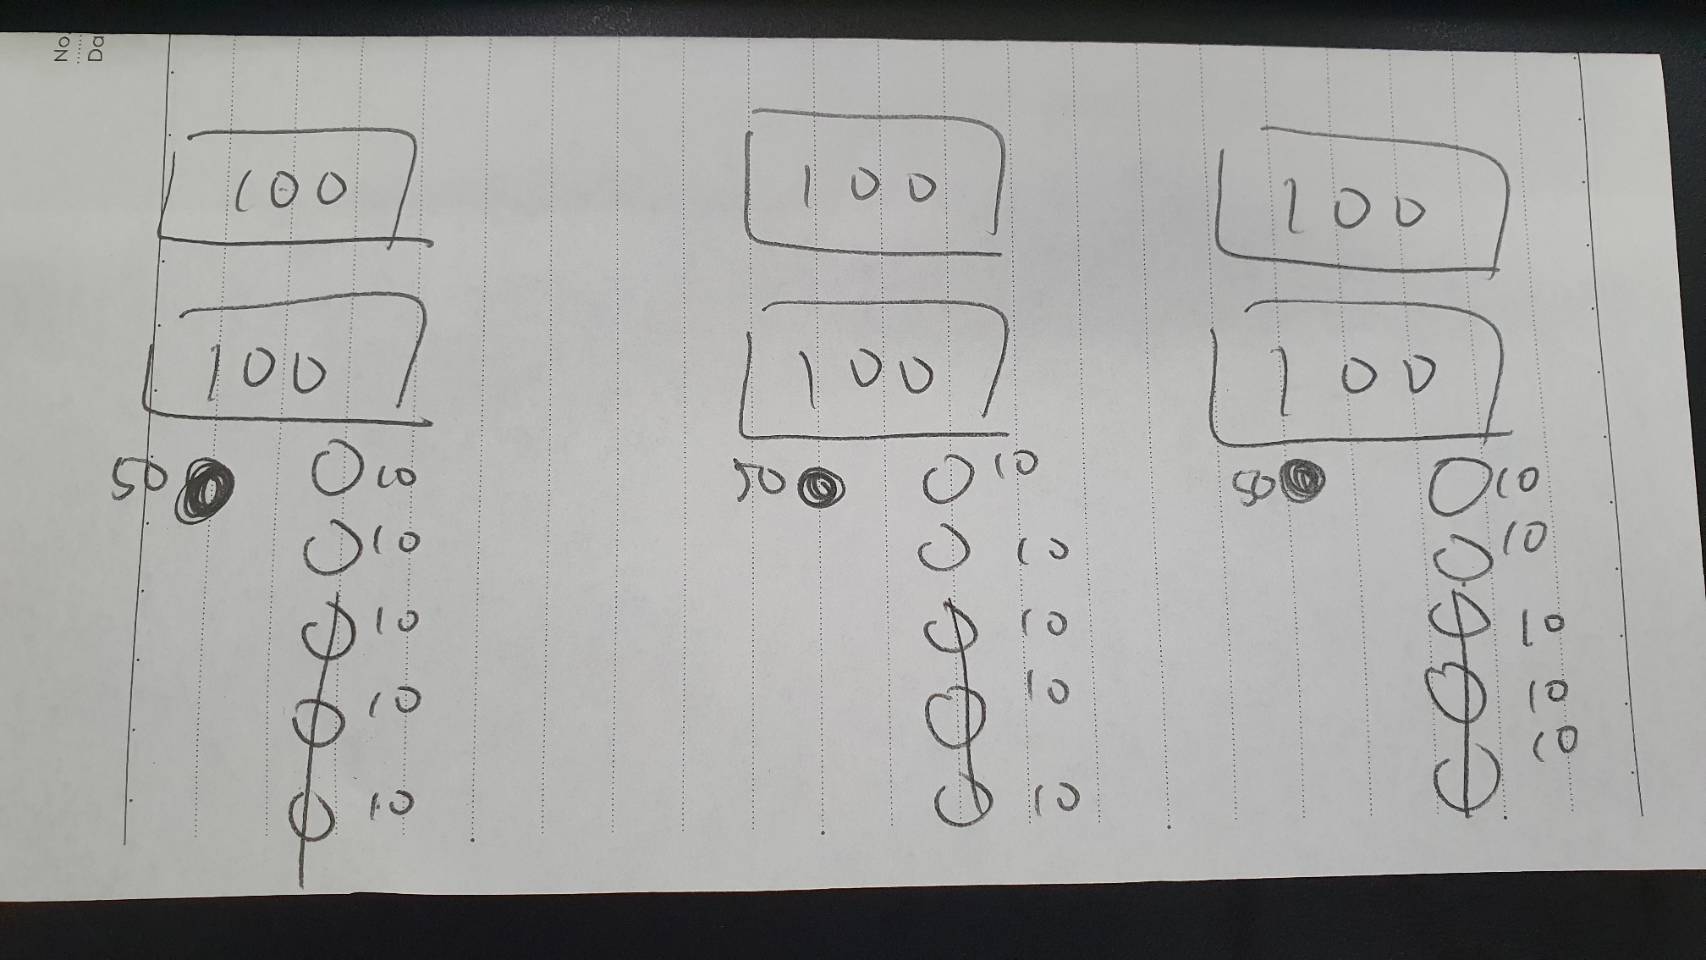 No.
Da
100 100 100
100 100 100
50 10 50 10 50 10
10 10 10
10 10 10
10 10 10
10 10 10